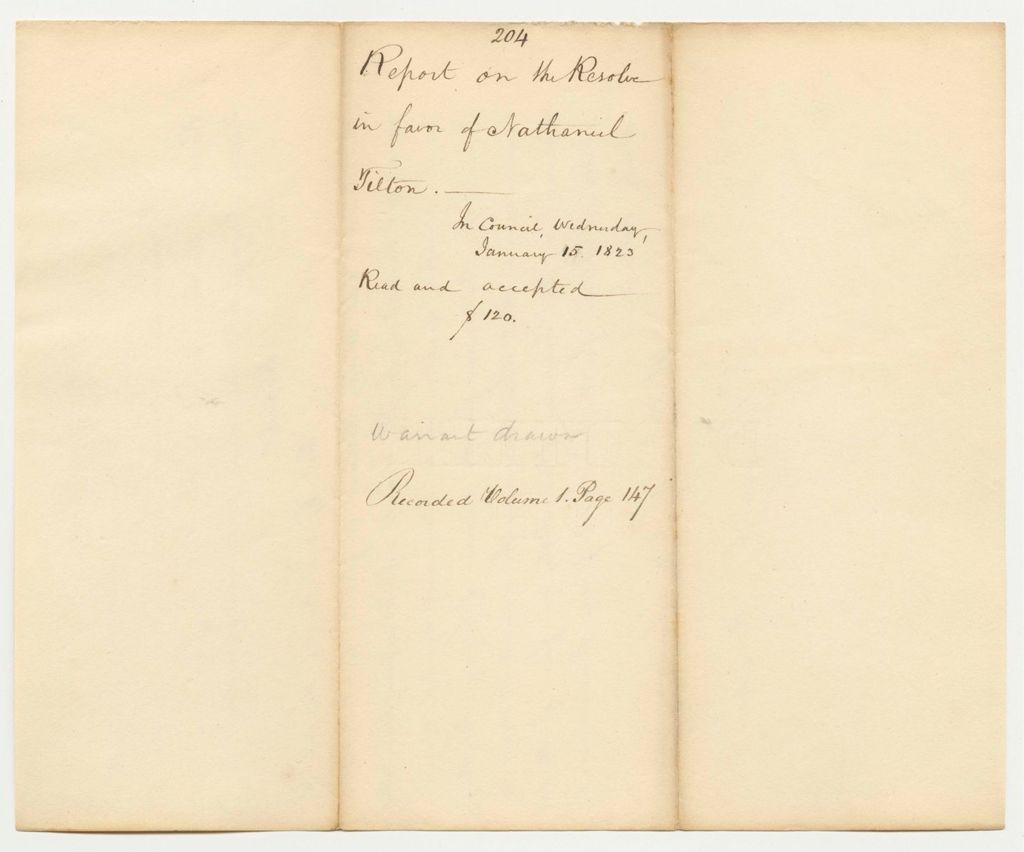 204
Report on the Resolve
in favor of Nathaniel
Tilton.
In Council, Wednesday,
January 15. 1823
Read and accepted
$ 120.
Warrant drawn
Recorded Volume 1. Page 147